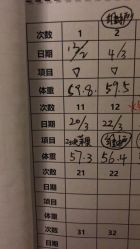 次数 1 2
日期 12/2 4/3
項目 ▽ ▽
体重 59.8 59.5
次数 11 12
日期 20/3 22/3
項目
体重 57.3 56.4
次数 21 22
日期
項目
体重
次数 31 32